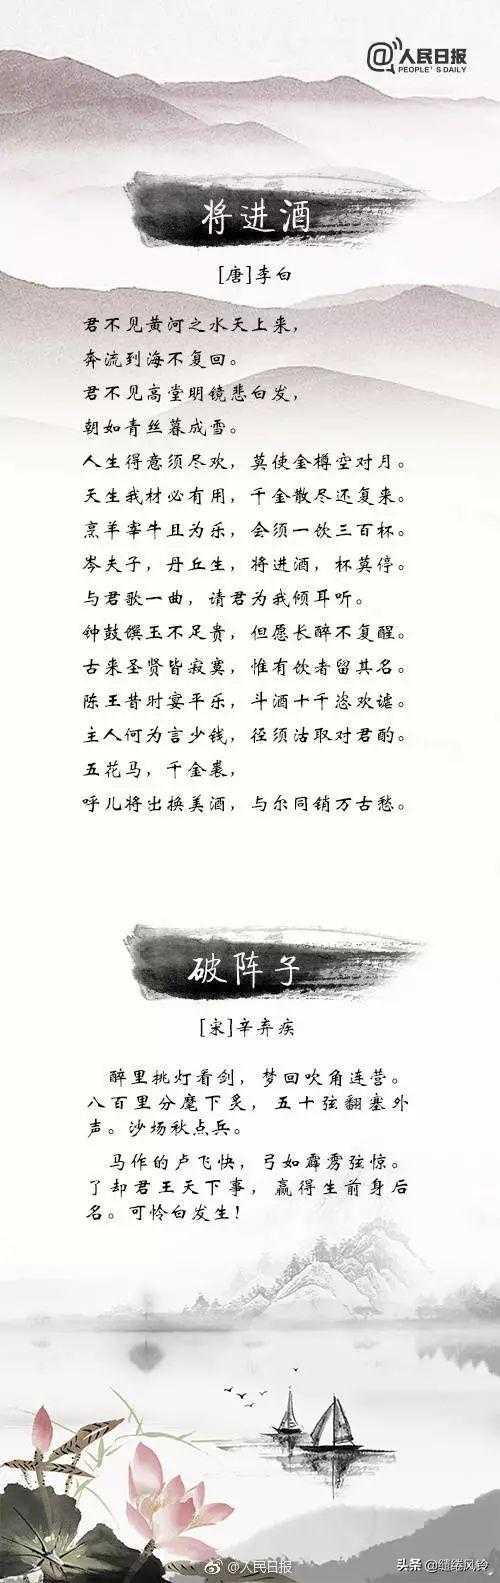 @人民日报
PEOPLE'S DAILY
将进酒
[唐]李白
君不见黄河之水天上来，
奔流到海不复回。
君不见高堂明镜悲白发，
朝如青丝暮成雪。
人生得意须尽欢，莫使金樽空对月。
天生我材必有用，千金散尽还复来。
烹羊宰牛且为乐，会须一饮三百杯。
岑夫子，丹丘生，将进酒，杯莫停。
与君歌一曲，请君为我倾耳听。
钟鼓馔玉不足贵，但愿长醉不复醒。
古来圣贤皆寂寞，惟有饮者留其名。
陈王昔时宴平乐，斗酒十千恣欢谑。
主人何为言少钱，径须沽取对君酌。
五花马，千金裘，
呼儿将出换美酒，与尔同销万古愁。
破阵子
[宋]辛弃疾
醉里挑灯看剑，梦回吹角连营。
八百里分麾下炙，五十弦翻塞外
声。沙场秋点兵。
马作的卢飞快，弓如霹雳弦惊。
了却君王天下事，赢得生前身后
名。可怜白发生！
@人民日报
头条 @缱绻风铃